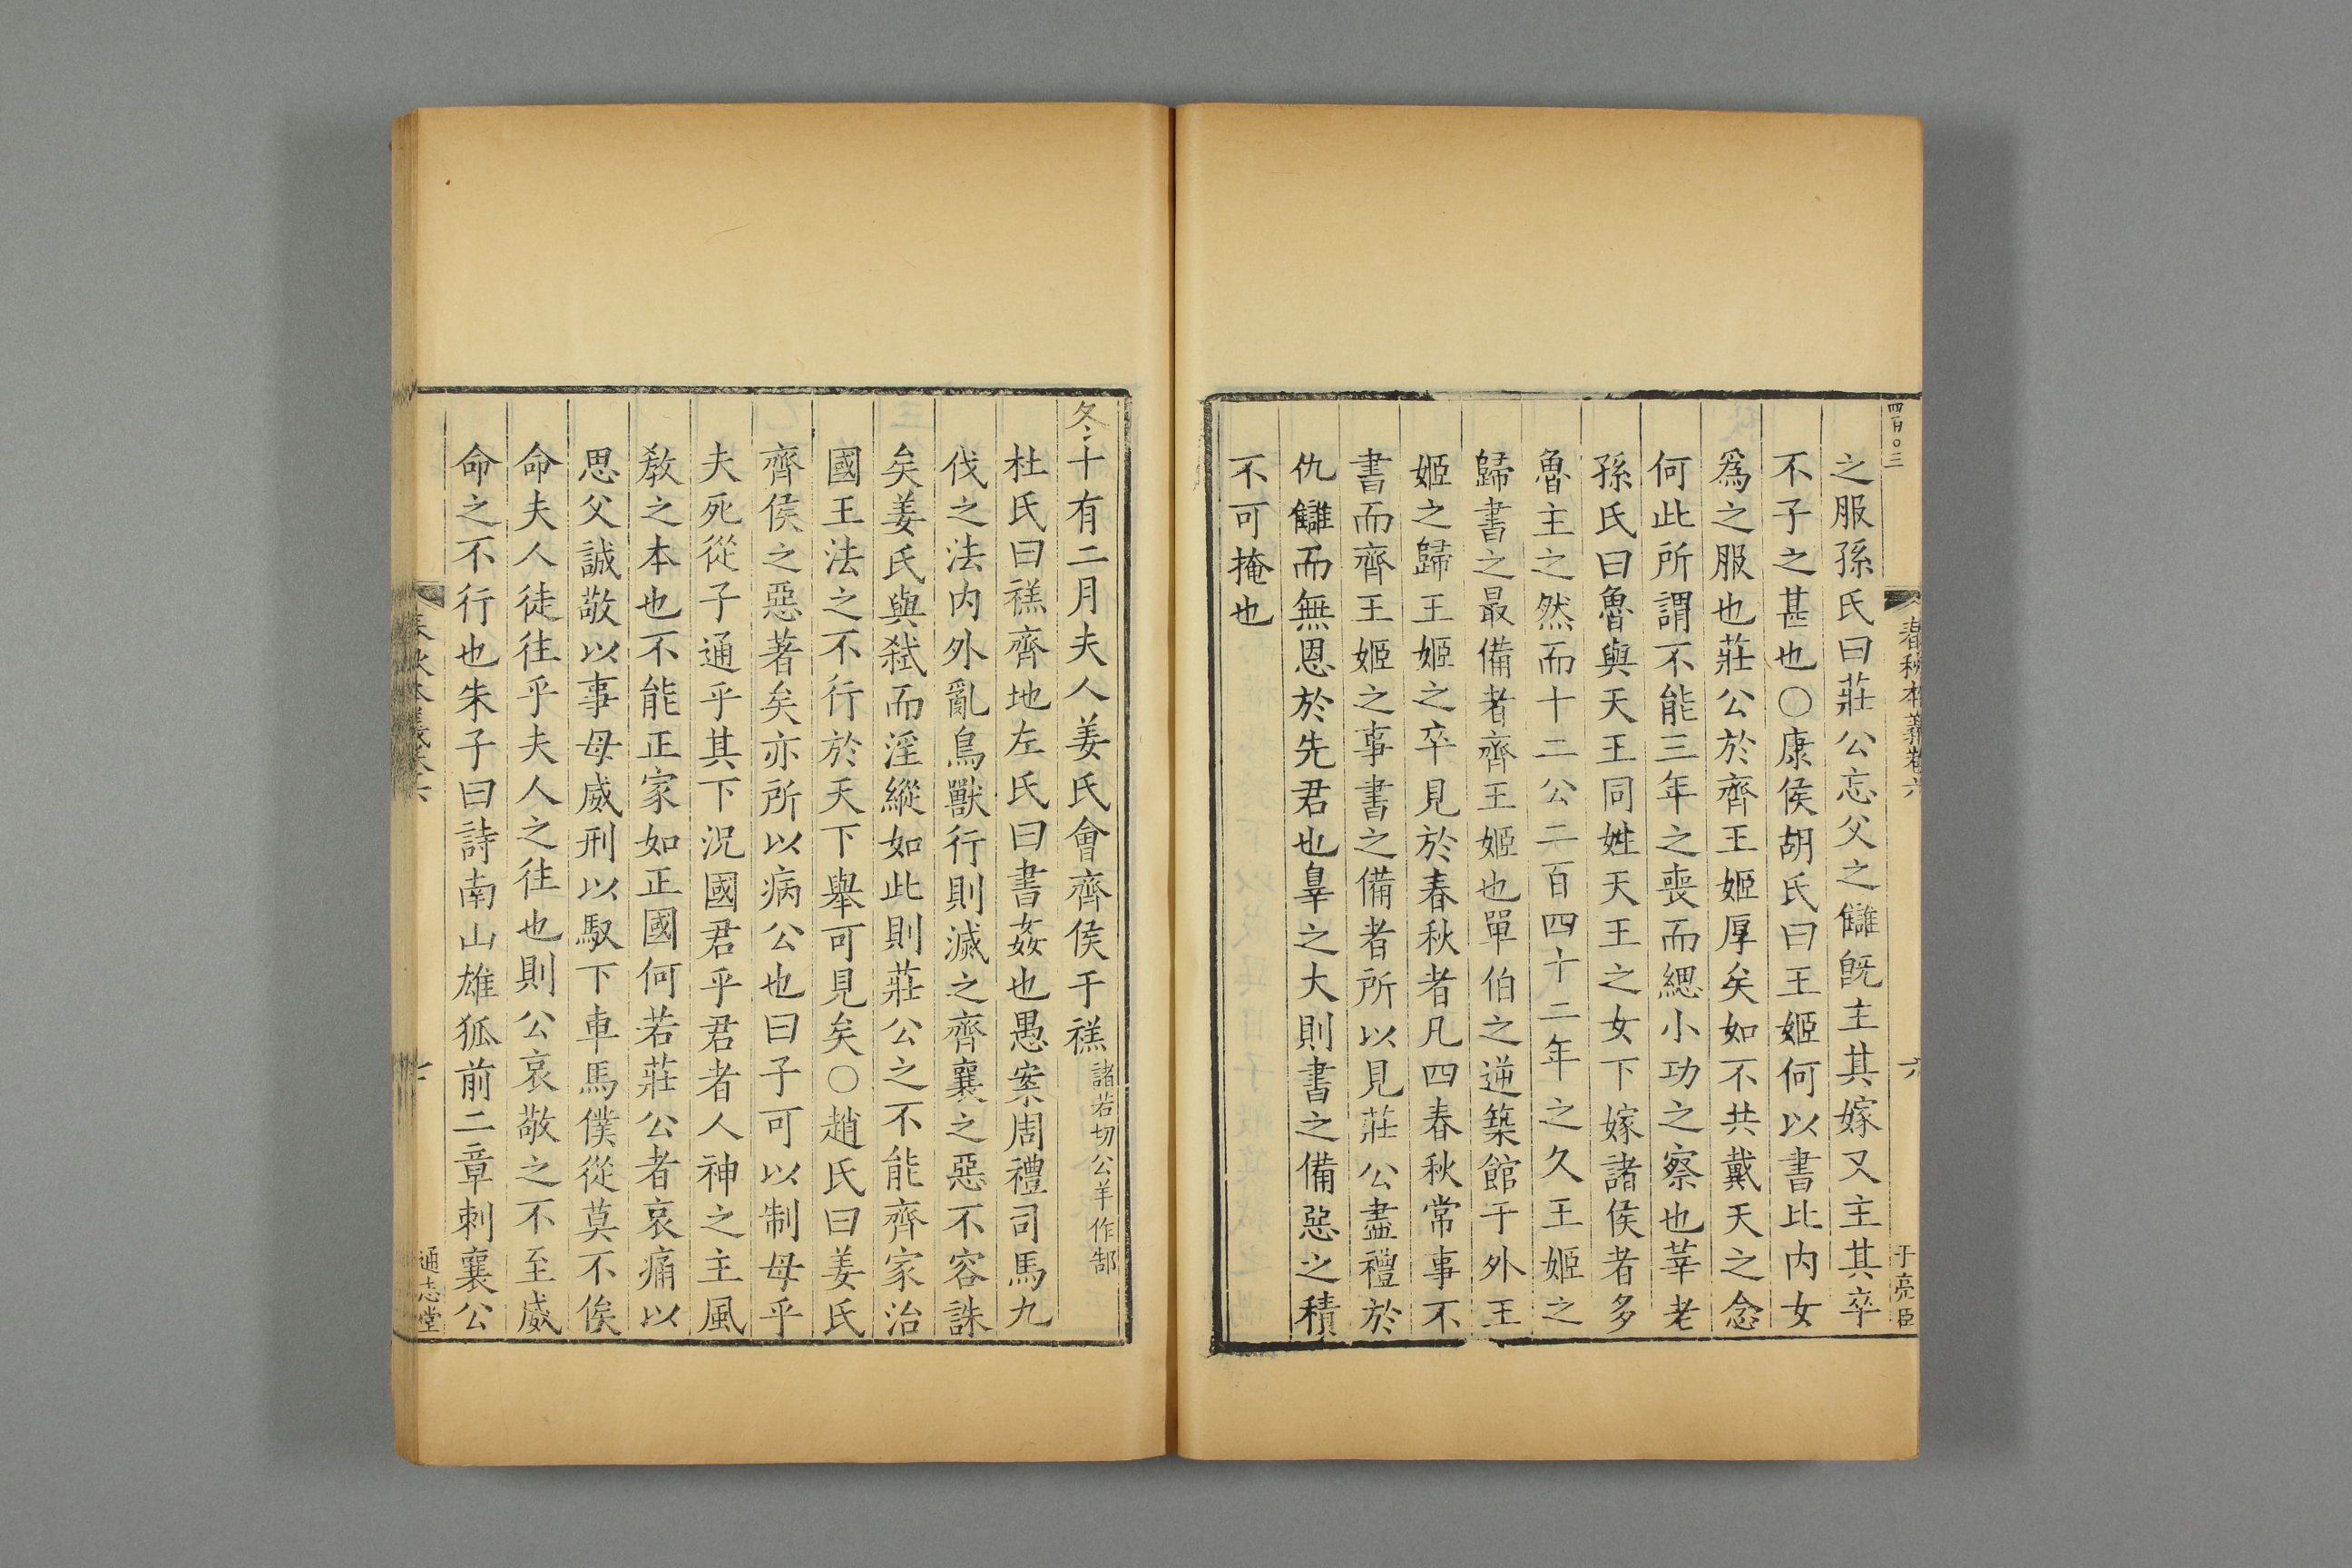 四百〇三
春秋本義卷六
六
于亮臣
之服孫氏曰莊公忘父之讎旣主其嫁又主其卒
不子之甚也〇康侯胡氏曰王姬何以書比内女
爲之服也莊公於齊王姬厚矣如不共戴天之念
何此所謂不能三年之喪而緦小功之察也莘老
孫氏曰魯與天王同姓天王之女下嫁諸侯者多
魯主之然而十二公二百四十二年之久王姬之
歸書之最備者齊王姬也單伯之逆築館于外王
姬之歸王姬之卒見於春秋者凡四春秋常事不
書而齊王姬之事書之備者所以見莊公盡禮於
仇讎而無恩於先君也辠之大則書之備惡之積
不可掩也
冬十有二月夫人姜氏會齊侯于禚諸若切公羊作郜
杜氏曰禚齊地左氏曰書姦也愚案周禮司馬九
伐之法内外亂鳥獸行則滅之齊襄之惡不容誅
矣姜氏與弑而淫縱如此則莊公之不能齊家治
國王法之不行於天下舉可見矣〇趙氏曰姜氏
齊侯之惡著矣亦所以病公也曰子可以制母乎
夫死從子通乎其下況國君乎君者人神之主風
敎之本也不能正家如正國何若莊公者哀痛以
思父誠敬以事母威刑以馭下車馬僕從莫不俟
命夫人徒往乎夫人之往也則公哀敬之不至威
命之不行也朱子曰詩南山雄狐前二章刺襄公
春秋本義卷六
七
通志堂